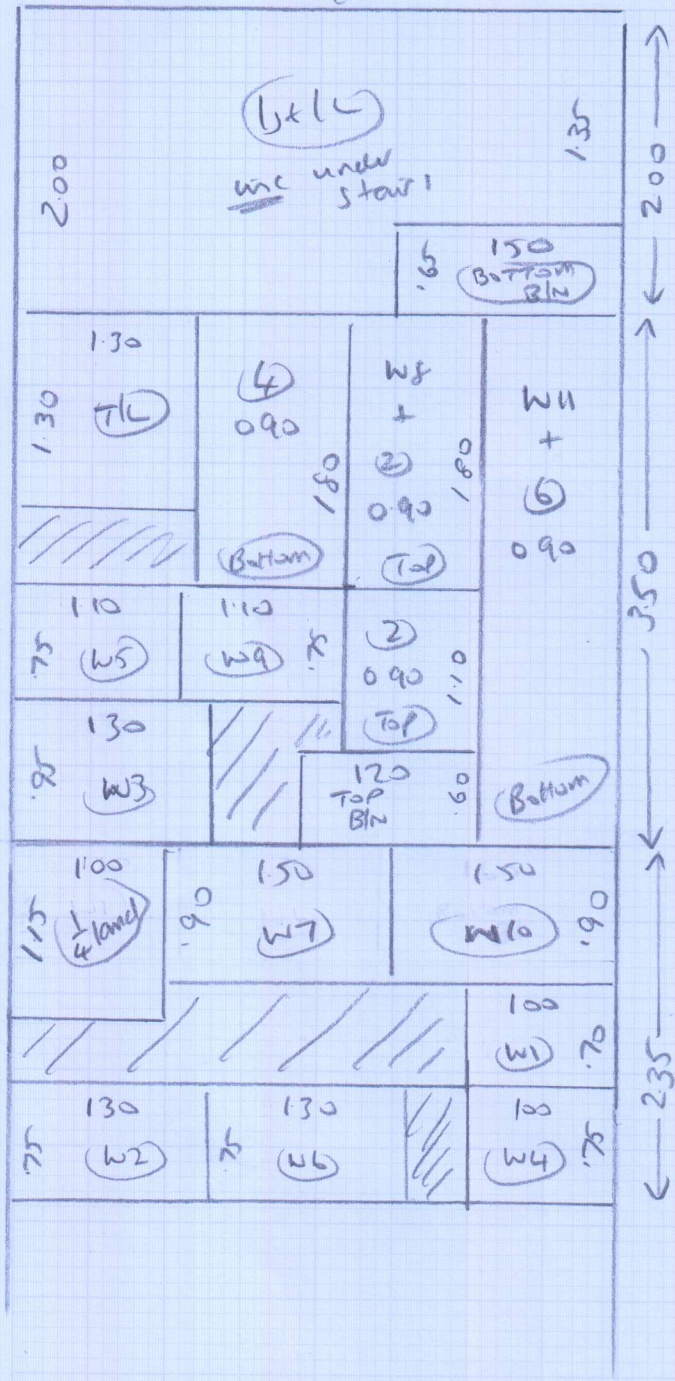 2.00
inc under
stairs
1.35
2.00
.65
1.50
BOTTOM
BIN
1.30
1.30
T/L
4
0.90
1.80
Bottom
W8
+
2
0.90
1.80
Top
W11
+
6
0.90
Bottom
3.50
1.10
.75
W5
1.10
W9
.75
2
0.90
1.10
Top
1.30
.95
W3
1.20
TOP
BIN
.60
1.00
1.15
1/4 land
1.50
.90
W7
1.50
W10
.90
1.00
W1
.70
2.35
1.30
.75
W2
1.30
.75
W6
1.00
W4
.75